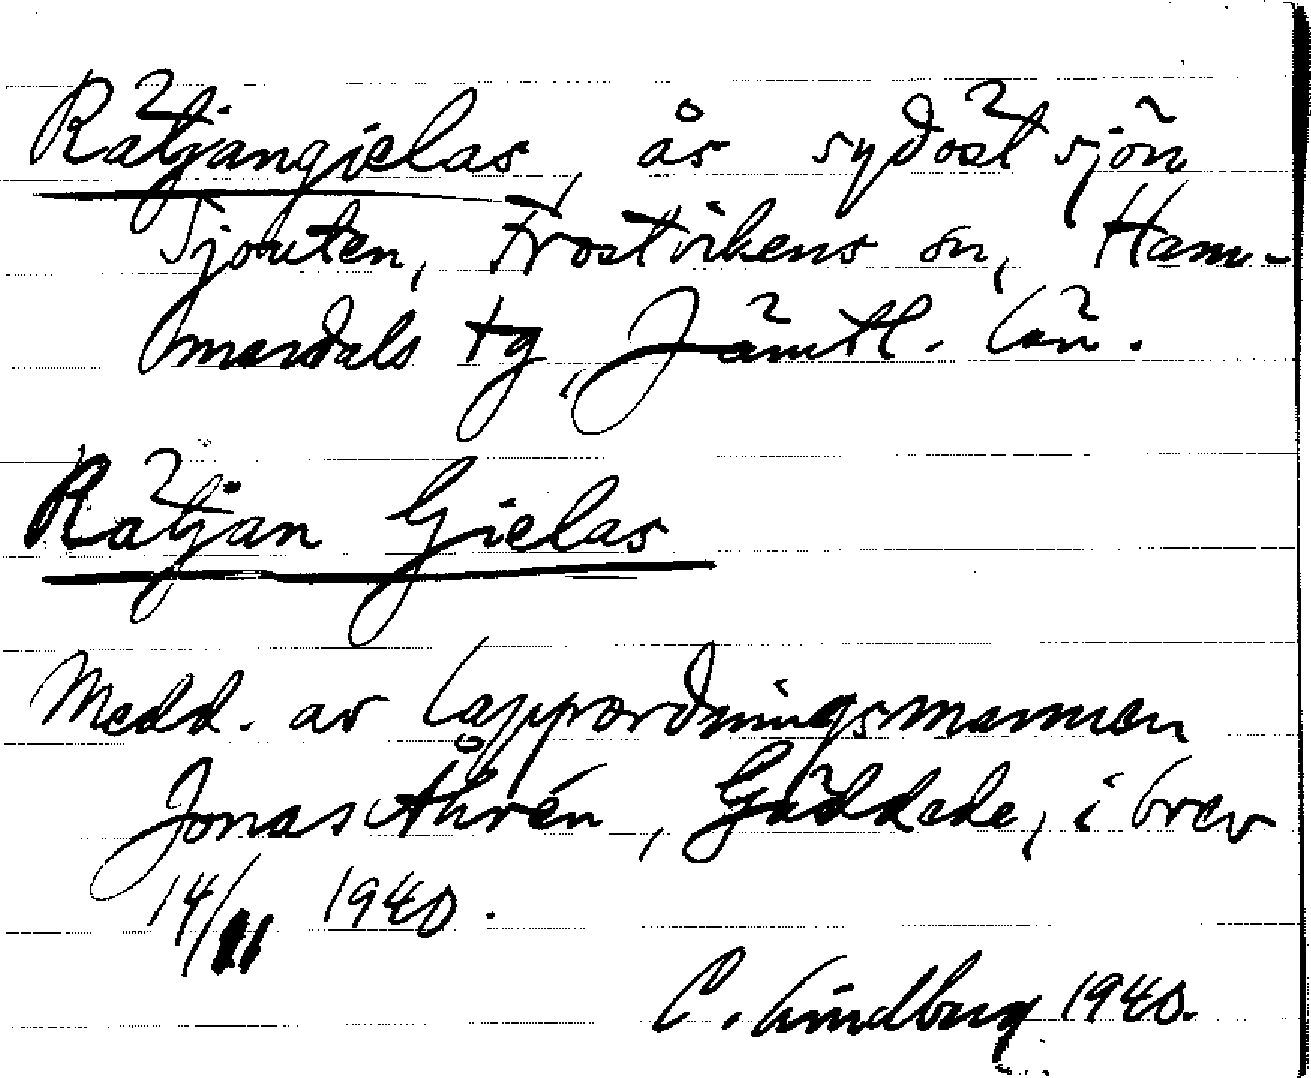 Rätjangielas, ås sydost sjön
Sjouten, Frostvikens sn, Ham-
mardals tg, Jämtl. län.
Rätjan Gielas
Medd. av lappordningsmannen
Jonas Åhrén, Gäddede, i brev
14/11 1940.
C. Lindberg 1940.